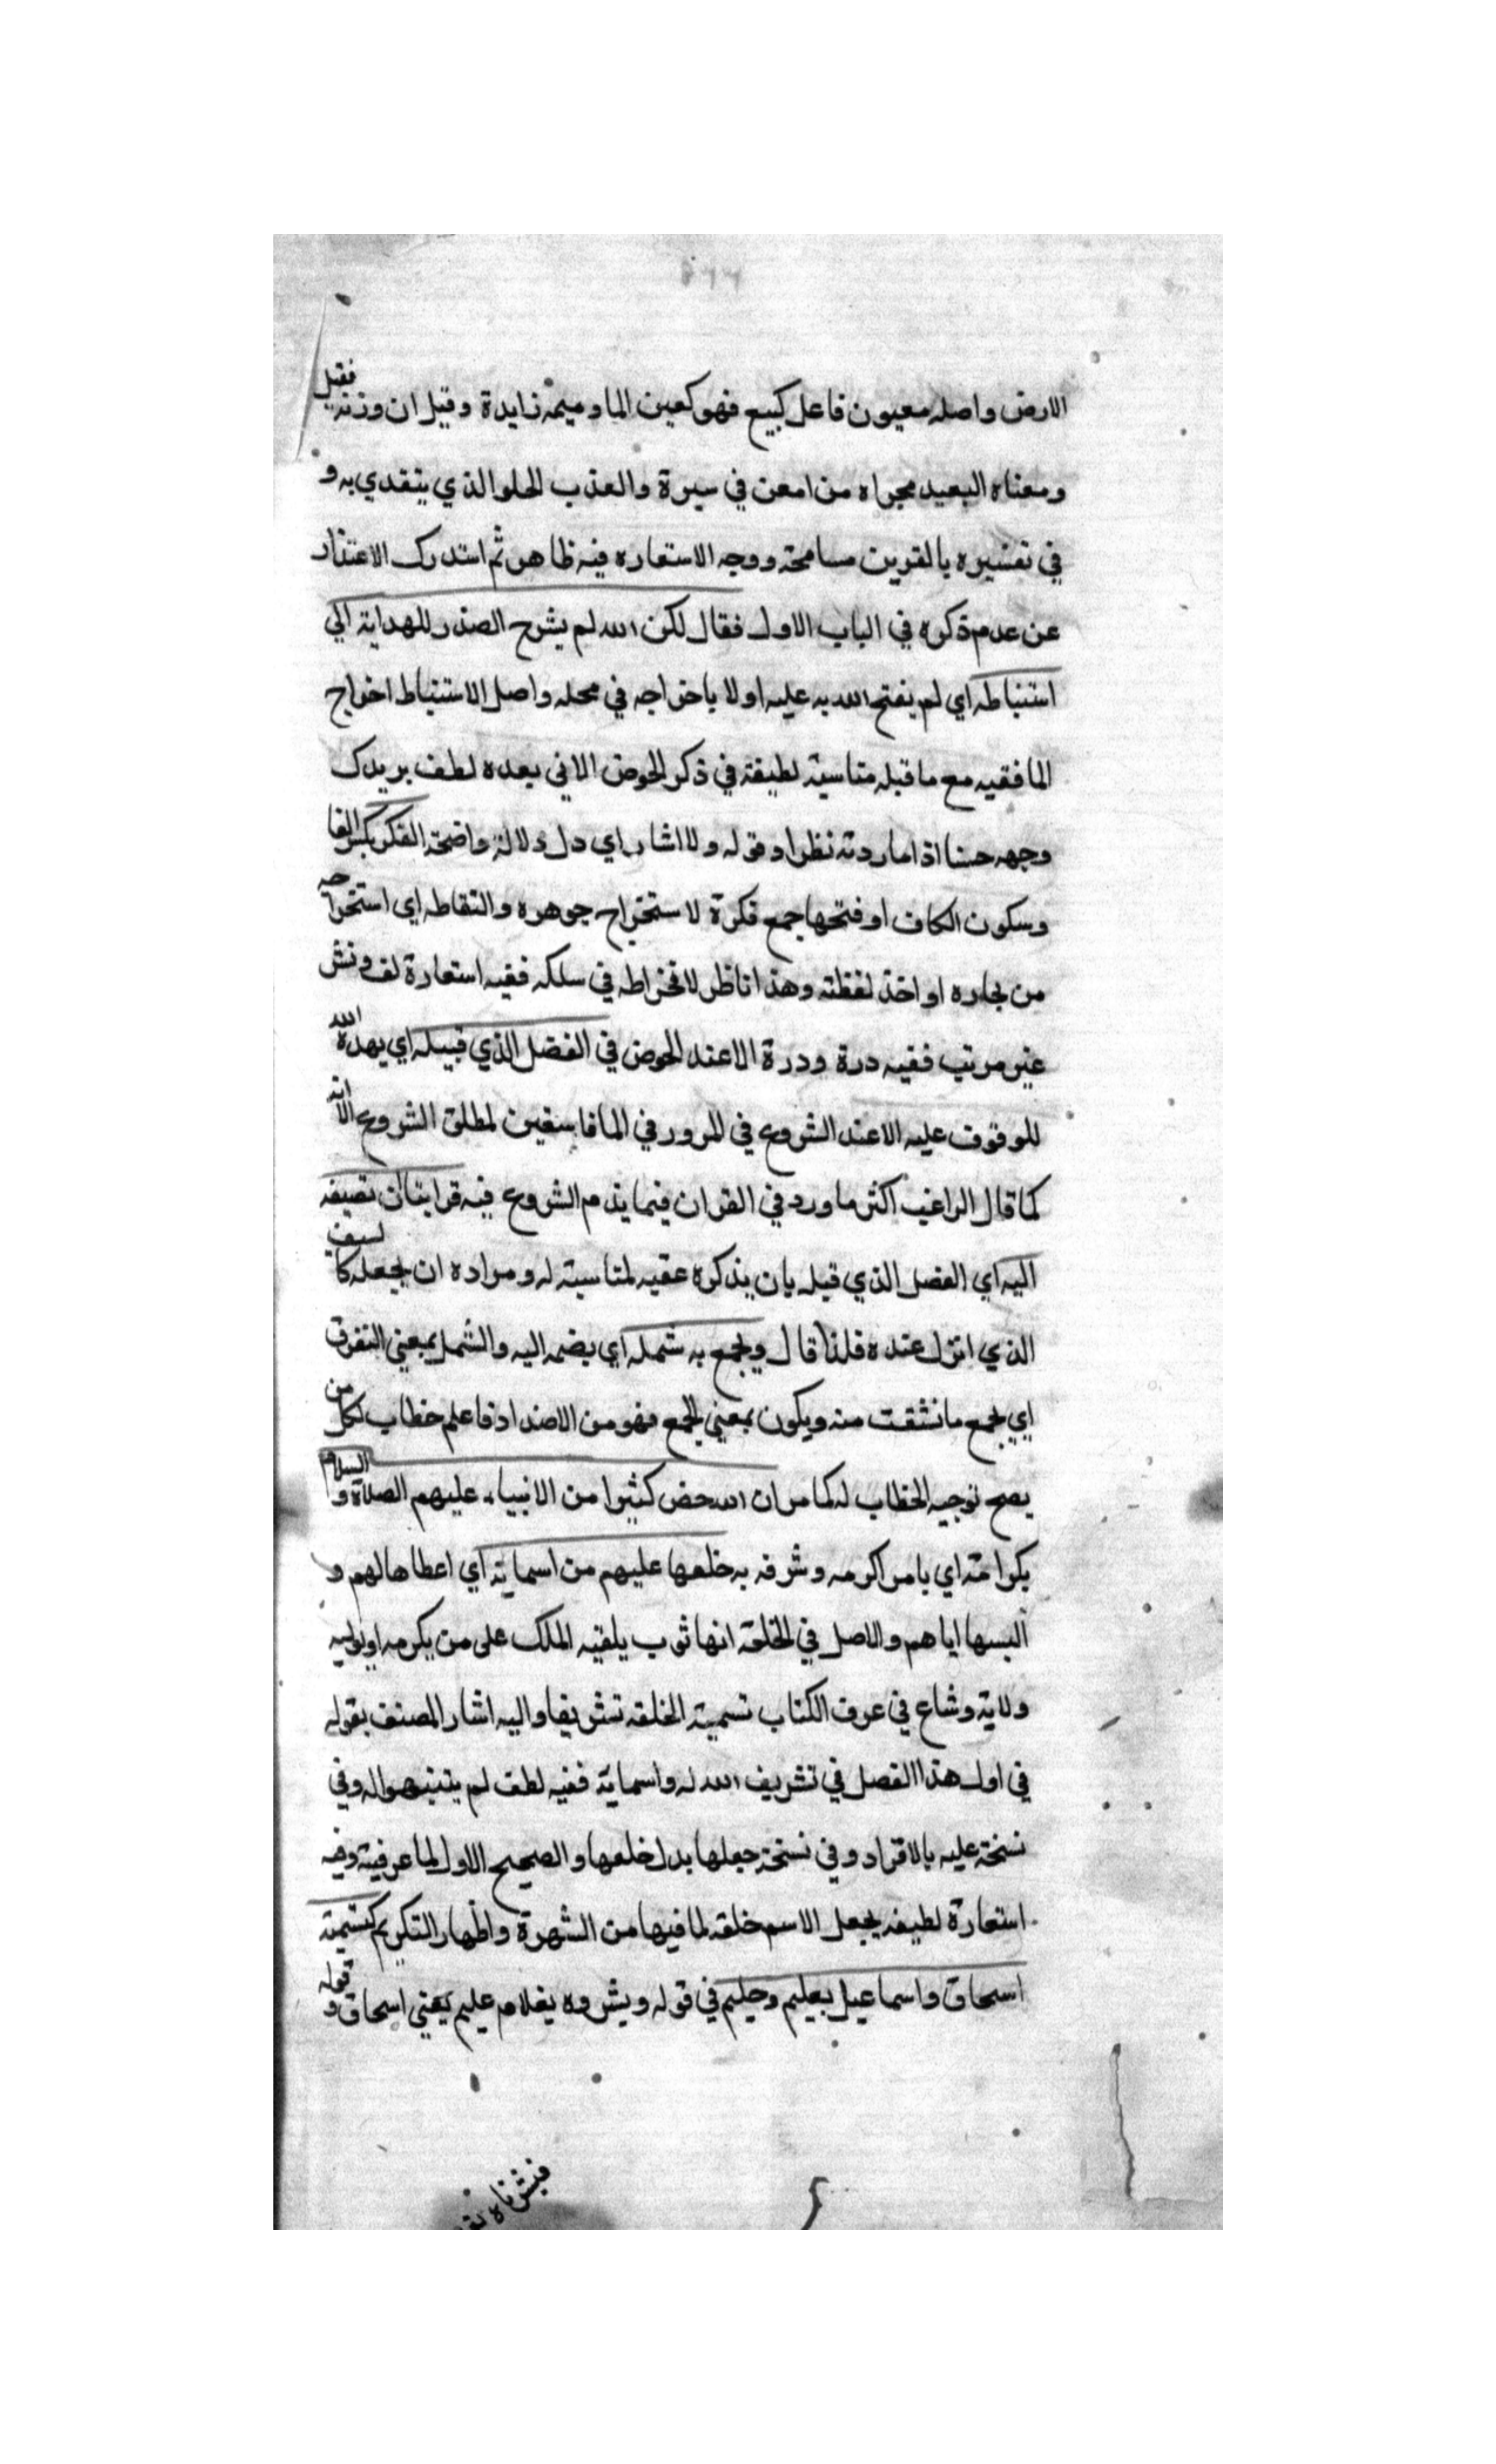 الارض واصله معيون فاعل كبيع فهو كعين الما وميمه زايدة وقيل ان وزنه فقيل
ومعناه البعيد مجراه من امعن في سيرة والعذب الحلو الذي يتقدي به و
في تفسيره بالقرين مسامحة ووجه الاستعاره فيه ظاهر ثم استدرك الاعتذار
عن عدم ذكره في الباب الاول فقال لكن الله لم يشرح الصدر للهداية الي
استنباطه اي لم يفتح الله به عليه اولا باخراجه في محله واصل الاستنباط اخراج
الما ففيه مع ما قبله مناسبة لطيفة في ذكر الحوض الاتي بعده لطف يريدك
وجهه حسنا اذا ما زدته نظرا وقوله ولا اشار اي دل دلالة واضحة الفكر بكسر الفا
وسكون الكاف او فتحها جمع فكرة لاستخراج جوهره والتقاطه اي استخراجه
من بحاره او اخذ لفظته وهذا ناظر لانخراطه في سلكه ففيه استعارة لف ونشر
غير مرتب ففيه درة ودرة الا عند الحوض في الفضل الذي قبيله اي يهده الله
للوقوف عليه الا عند الشروع في المرور في الما فاستعير لمطلق الشروع الا انه
كما قال الراغب اكثر ما ورد في القران فيما يذم الشروع فيه فراينا ان نضيفه
اليه اي الفصل الذي قبله بان يذكره عقبه لمناسبة له ومراده ان يجعله كالسيف
الذي انزل عنده فلذا قال ويجمع به شمله اي يضمه اليه والشمل بمعني التفرق
اي يجمع ما نشقت منه ويكون بمعني الجمع فهو من الاضداد فاعلم خطاب لكل من
يصح توجيه الخطاب له كما مر ان الله خص كثيرا من الانبياء عليهم الصلاة والسلام
بكرامة اي بامر اكرمه وشرفه به خلعها عليهم من اسمايه اي اعطاها لهم و
البسها اياهم والاصل في الخلعة انها ثوب يلقيه الملك على من يكرمه او يوليه
ولاية وشاع في عرف الكتاب تسمية الخلعة تشريفا واليه اشار المصنف بقوله
في اول هذا الفصل في تشريف الله له واسمايه ففيه لطف لم يتنبهوا له وفي
نسخة عليه بالافراد وفي نسخة جعلها بدل خلعها والصحيح الاول لما عرفته وفيه
استعارة لطيفة بجعل الاسم خلعة لما فيها من الشهرة واظهار التكريم كتسمية
اسحاق واسماعيل بعليم وحليم في قوله وبشروه بغلام عليم يعني اسحاق وقوله
فبشرناه